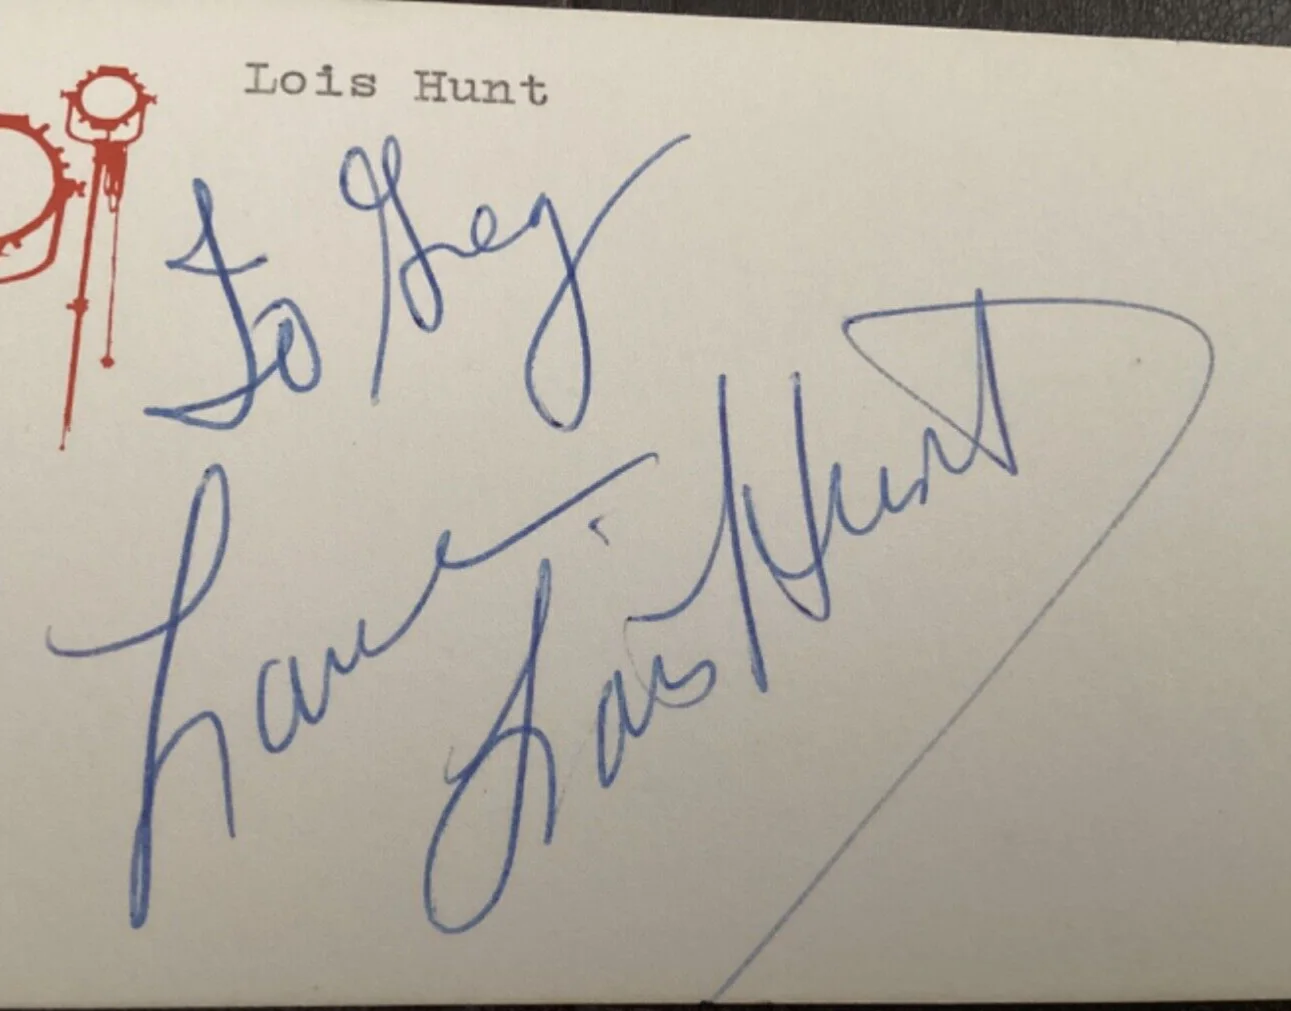 Lois Hunt
To Greg
Love
Lois Hunt